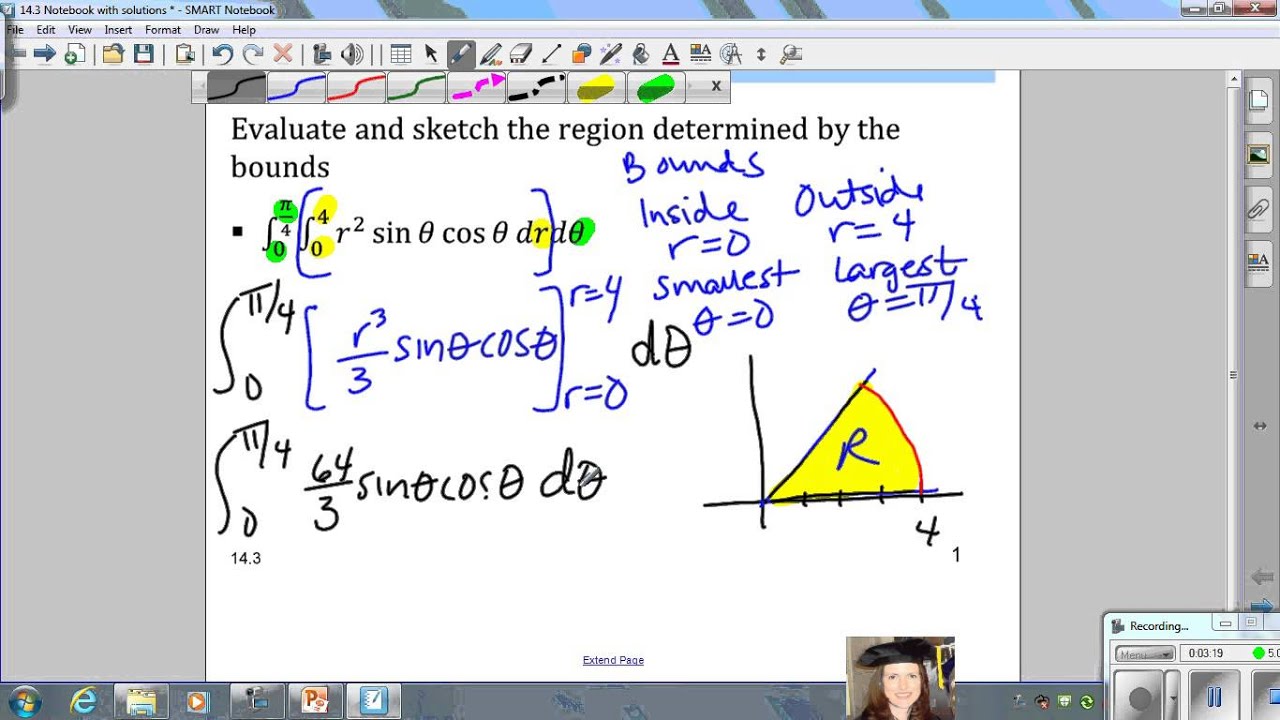 14.3 Notebook with solutions * - SMART Notebook
File Edit View Insert Format Draw Help
x
Evaluate and sketch the region determined by the
bounds
▪ ∫₀^(π/4) [∫₀^4 r² sin θ cos θ dr] dθ
Bounds
Inside Outside
r=0 r=4
Smallest Largest
θ=0 θ=π/4
∫₀^(π/4) [r³/3 sinθcosθ]_(r=0)^(r=4) dθ
∫₀^(π/4) 64/3 sinθcosθ dθ
R
4
14.3
1
Extend Page
Recording...
Menu
0:03:19
5.0